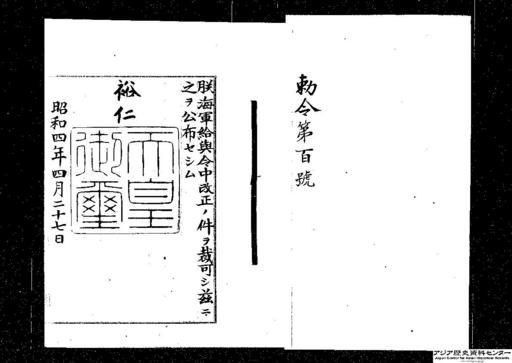 勅令第百號
朕海軍給與令中改正ノ件ヲ裁可シ茲ニ
之ヲ公布セシム
裕仁
天皇
御璽
昭和四年四月二十七日
アジア歴史資料センター
Japan Center for Asian Historical Records